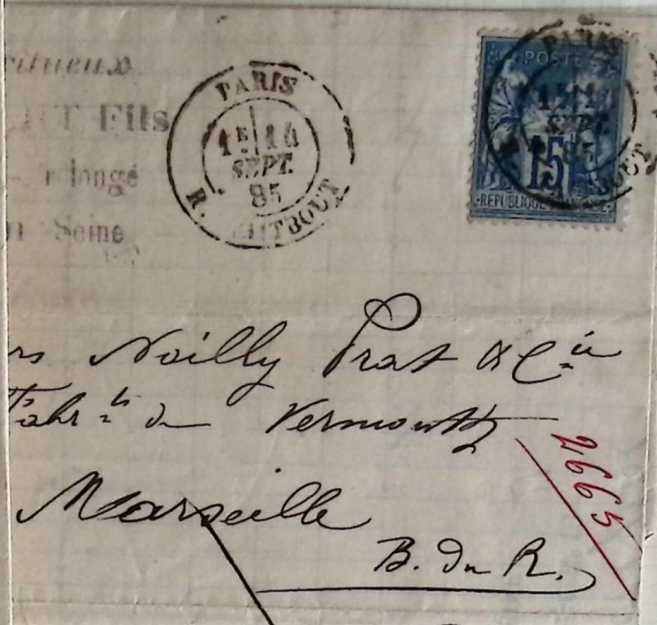 ritueux
RT Fils
rolongé
Seine
PARIS
1E 14
SEPT.
85
R. TAITBOUT
POSTE
15
REPUBLIQUE FRANÇAISE
PARIS
SEPT
85
rs Noilly Prat & Cie
Fabr.ts de Vermouth
Marseille
B. du R.
2665